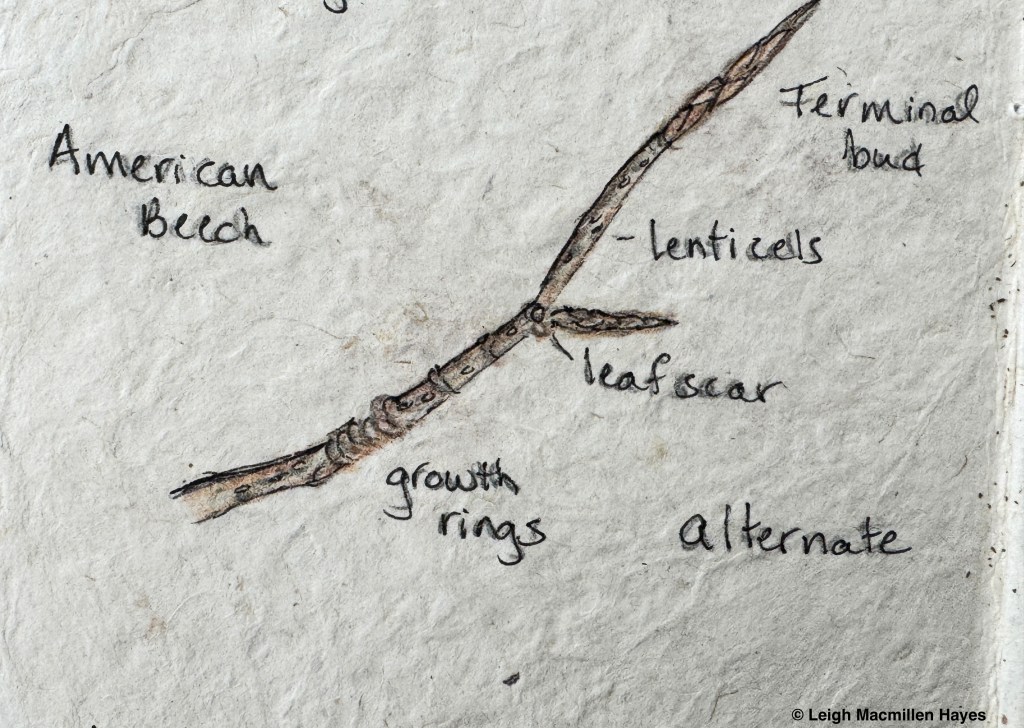 American
Beech
Terminal
bud
- lenticells
leaf scar
growth
rings
alternate
© Leigh Macmillen Hayes